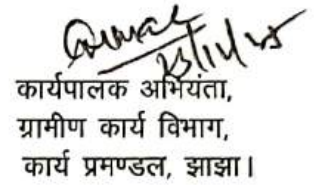 कार्यपालक अभियंता,
ग्रामीण कार्य विभाग,
कार्य प्रमण्डल, झाझा।